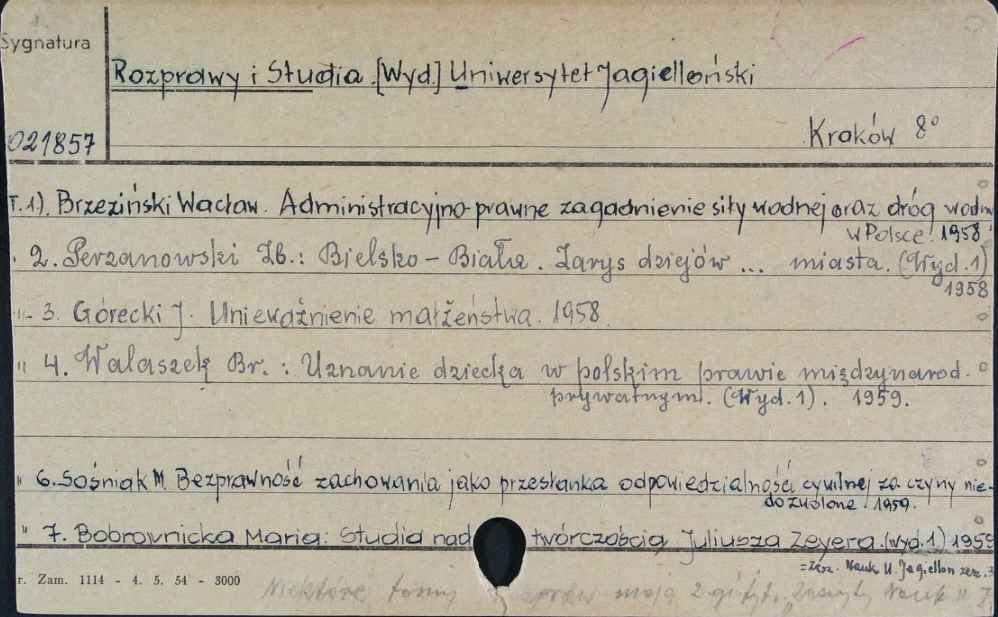 Sygnatura
Rozprawy i Studia. [Wyd.] Uniwersytet Jagielloński
021857
Kraków 8°
T. 1). Brzeziński Wacław. Administracyjno-prawne zagadnienie siły wodnej oraz dróg wodn
w Polsce. 1958
" 2. Perzanowski Zb.: Bielsko - Biała. Zarys dziejów ... miasta. (Wyd. 1)
1958
" 3. Górecki J. Unieważnienie małżeństwa. 1958.
" 4. Walaszek Br.: Uznanie dziecka w polskim prawie międzynarod.
prywatnym. (Wyd. 1). 1959.
" 6. Sośniak M. Bezprawność zachowania jako przesłanka odpowiedzialności cywilnej za czyny nie-
dozwolone. 1959.
" 7. Bobrownicka Maria: Studia nad twórczością Juliusza Zeyera. (wyd. 1) 1959
= Zesz. Nauk. U. Jagiellon zesz. 3
r. Zam. 1114 - 4. 5. 54 - 3000
Niektóre tomy mają 2 gi tyt. "Zeszyty Nauk"